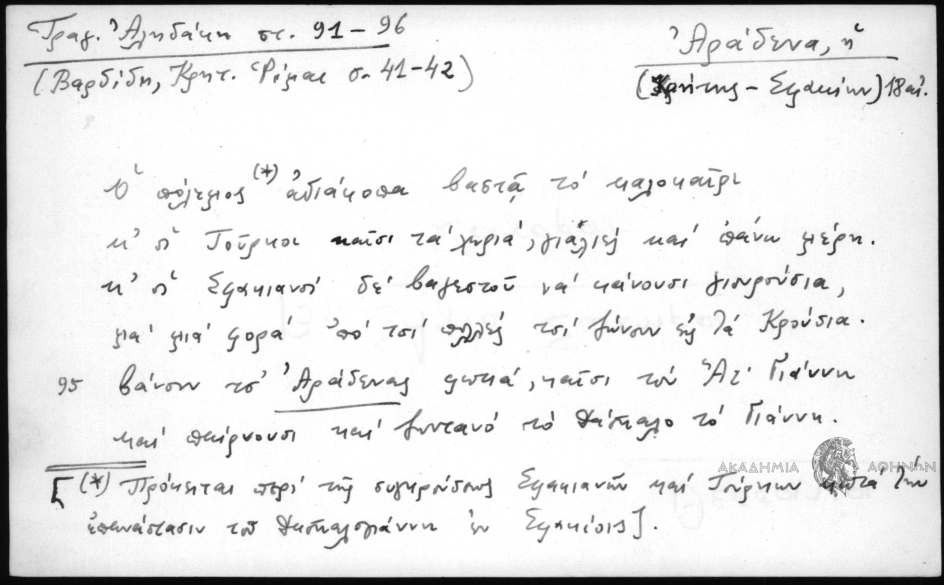 Τραγ. Ἀληδάκη στ. 91-96
(Βαρδίδη, Κρητ. Ρίμαι σ. 41-42)
Ἀράδενα, ἡ
(Κρήτης - Σφακίων) 18 αἰ.
Ὁ πόλεμος (*) ἀδιάκοπα βαστᾷ τὸ καλοκαῖρι
κ' οἱ Τοῦρκοι καῖσι τὰ χωριά, γιαλιὲς καὶ ἐπάνω μέρη.
κ' οἱ Σφακιανοὶ δὲ βαγεστοῦ νὰ κάνουσι γιουρούσια,
μὰ μιὰ φορὰ ἀπὸ τσὶ πολλὲς τσὶ ζώνουν εἰς τὰ Κρούσια.
95 Βάνουν τσ' Ἀράδενας φωτιά, καῖσι τὸν Ἅϊ Γιάννη
καὶ παίρνουσι καὶ ζωντανὸ τὸ Δάσκαλο τὸ Γιάννη.
[(*) Πρόκειται περὶ τῆς συγκρούσεως Σφακιανῶν καὶ Τούρκων κατὰ τὴν
ἐπανάστασιν τοῦ Δασκαλογιάννη ἐν Σφακίοις].
ΑΚΑΔΗΜΙΑ ΑΘΗΝΩΝ